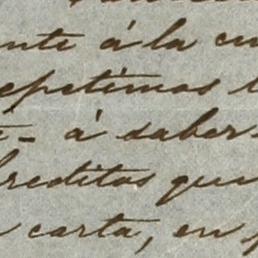 nte á la cu
epetimos
- á saber
creditos que
carta, en